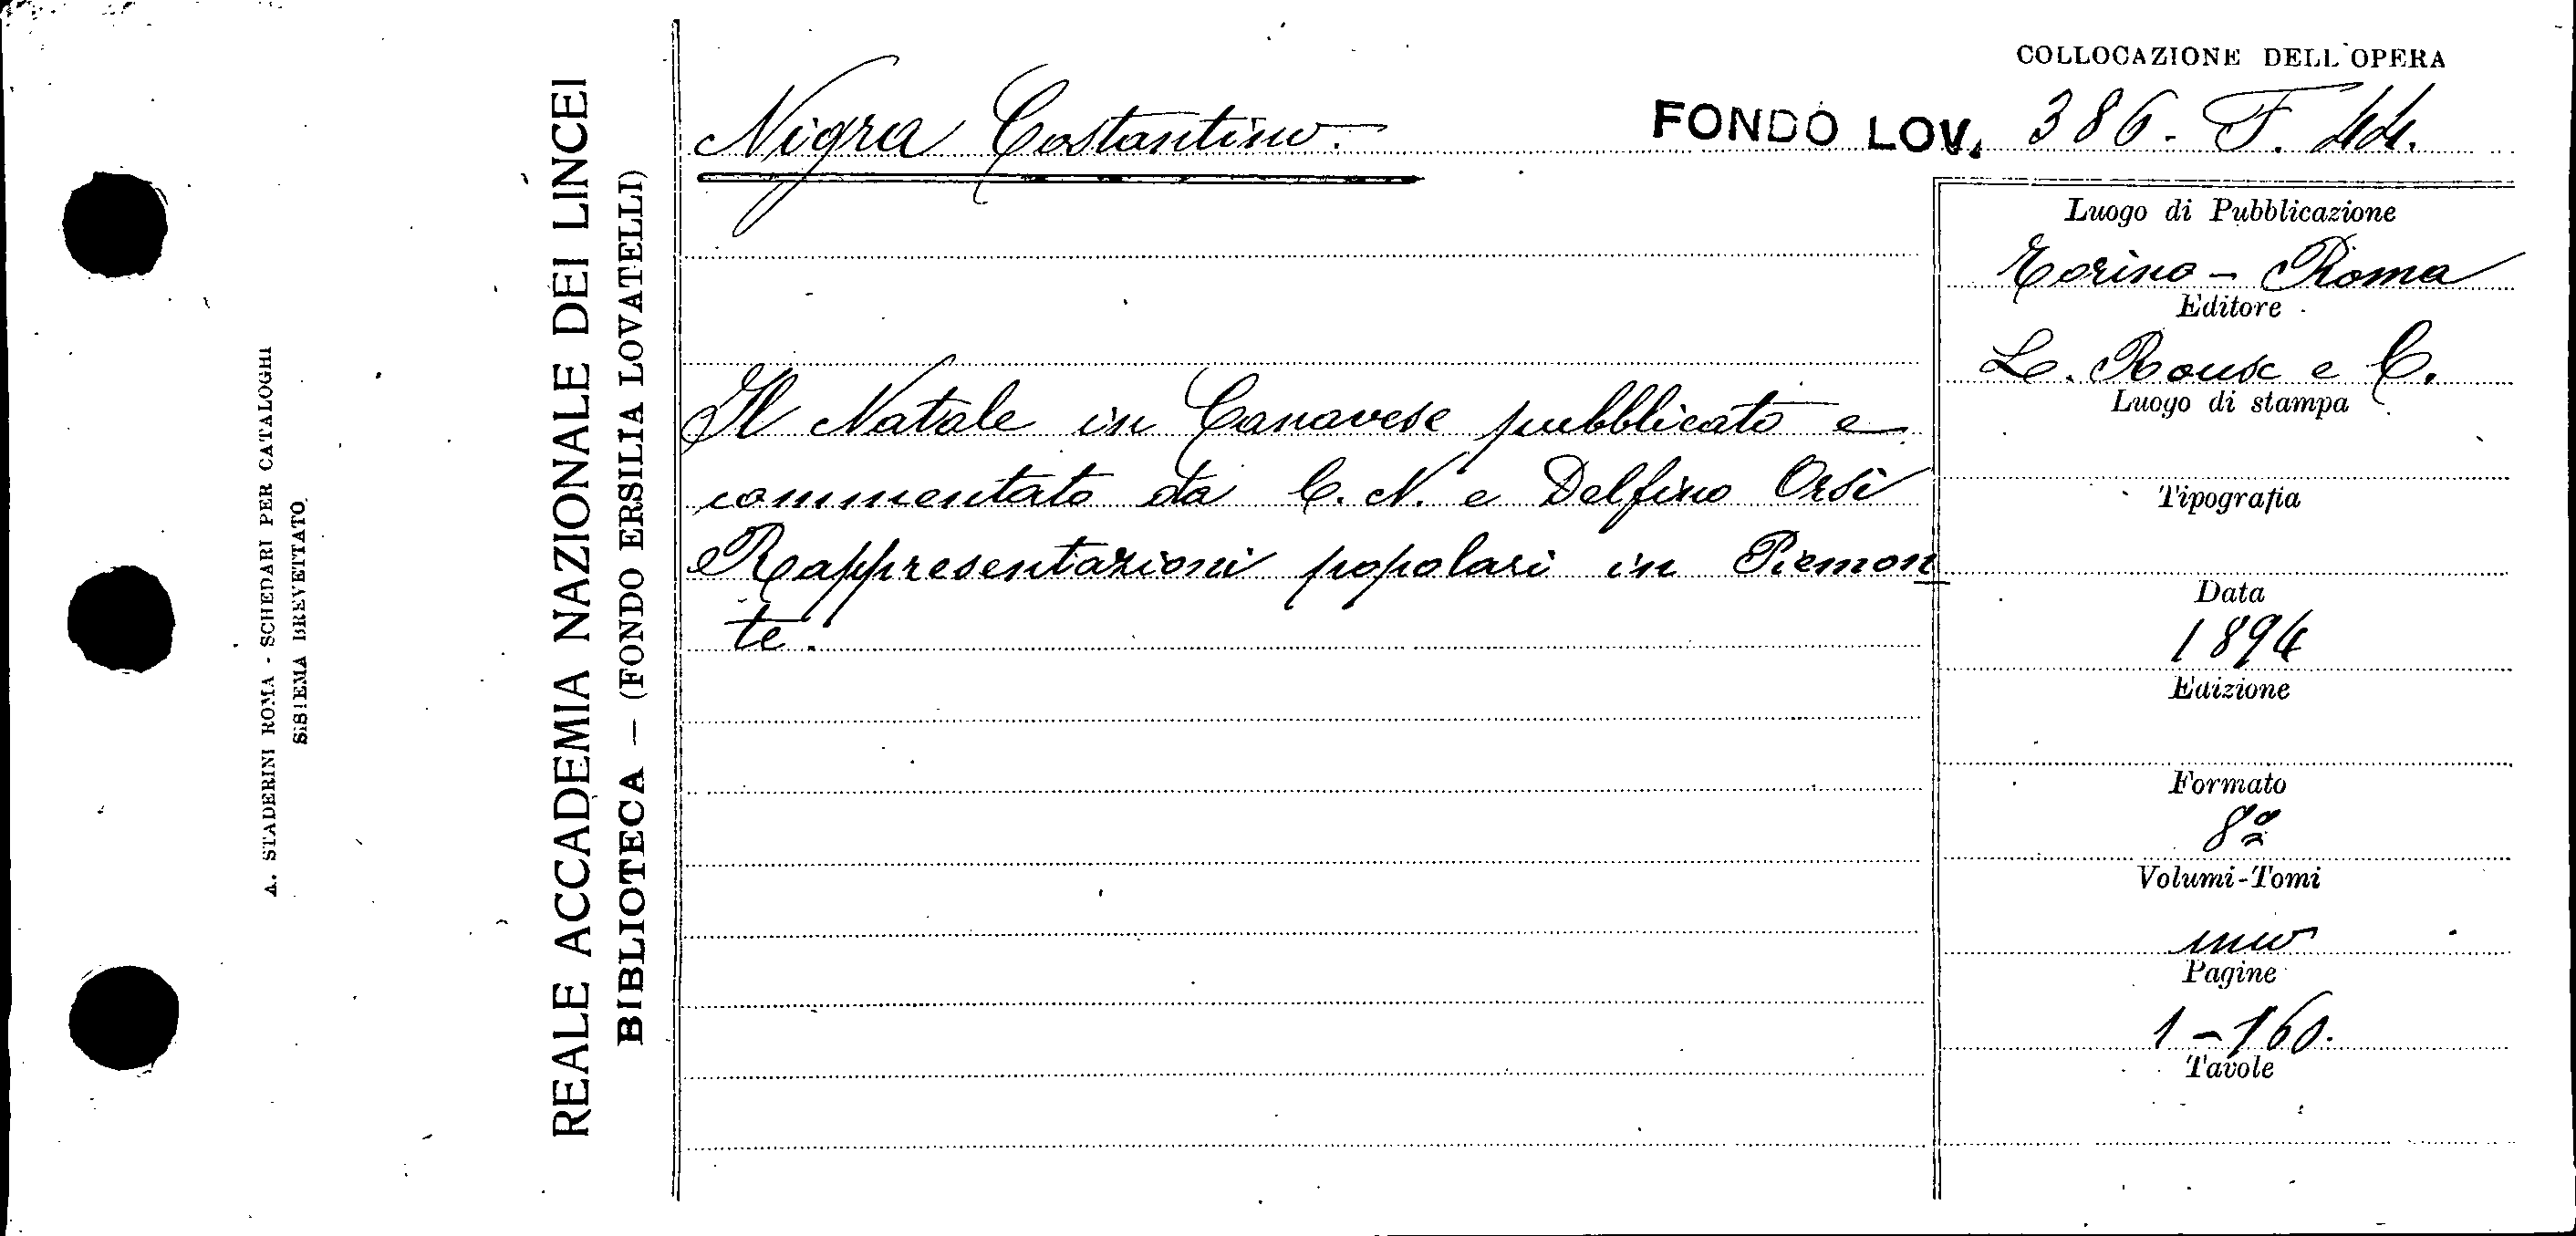 A. STADERINI ROMA - SCHEDARI PER CATALOGHI
SISTEMA BREVETTATO
REALE ACCADEMIA NAZIONALE DEI LINCEI
BIBLIOTECA — (FONDO ERSILIA LOVATELLI)
COLLOCAZIONE DELL'OPERA
Nigra Costantino.
FONDO LOV. 386. F. 44.
Il Natale in Canavese pubblicato e
commentato da C. N. e Delfino Orsi
Rappresentazioni popolari in Piemon
te.
Luogo di Pubblicazione
Torino - Roma
Editore
L. Roux e C.
Luogo di stampa
Tipografia
Data
1894
Edizione
Formato
8º
Volumi-Tomi
uno
Pagine
1 - 160.
Tavole